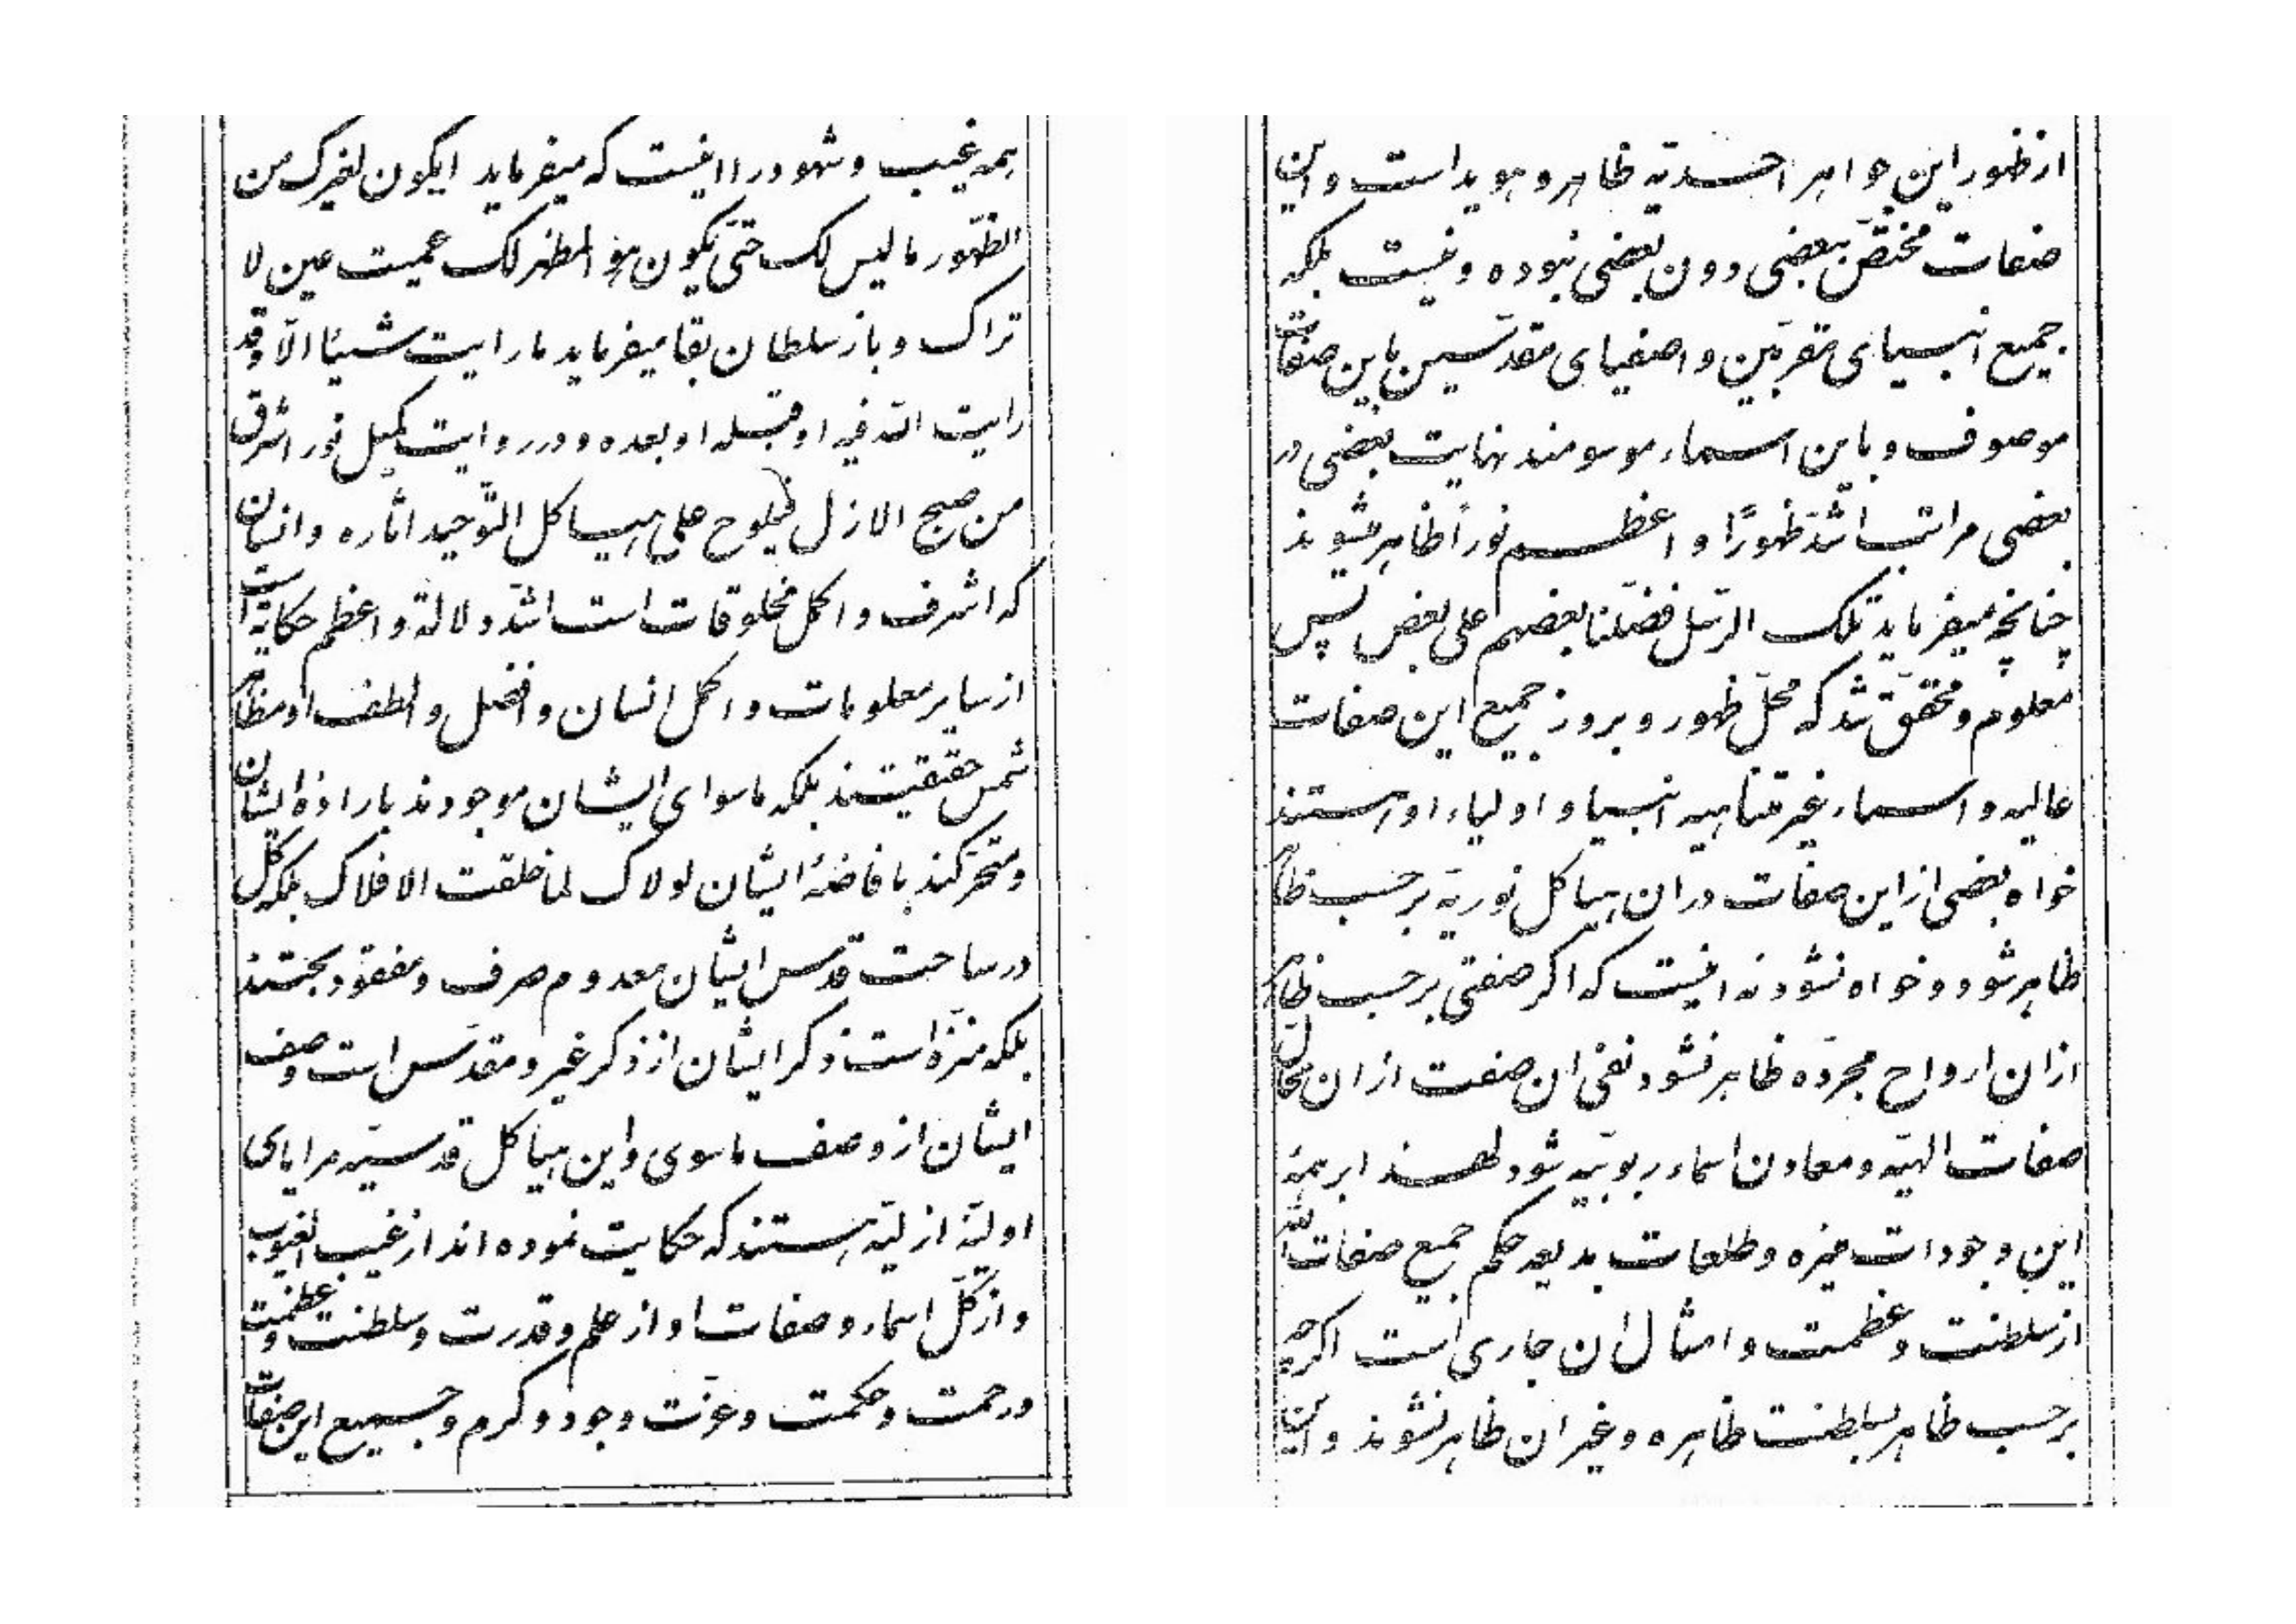 همه غیب و شهود را اینست که میفرماید ایکون لغیرک من
الظّهور ما لیس لک حتّی یکون هو المظهر لک عمیت عین لا
تراک و باز سلطان بقا میفرماید ما رایت شیئا الّا و قد
رایت اللّه فیه او قبله او بعده و در روایت کمیل نور اشرق
من صبح الازل فیلوح علی هیاکل التّوحید اثاره و انسان
که اشرف و اکمل مخلوقات است اشدّ دلالة و اعظم حکایة است
از سایر معلومات و اکمل انسان و افضل و الطف او مظاهر
شمس حقیقتند بلکه ماسوای ایشان موجودند باراده ایشان
و متحرکند بافاضهٔ ایشان لولاک لما خلقت الافلاک بلکه کلّ
در ساحت قدس ایشان معدوم صرف و مفقود بحتند
بلکه منزّه است ذکر ایشان از ذکر غیر و مقدّس است وصف
ایشان از وصف ماسوی و این هیاکل قدسیّه مرایای
اولیّه ازلیّه هستند که حکایت نموده اند از غیب الغیوب
و از کلّ اسماء و صفات او از علم و قدرت و سلطنت و عظمت
و رحمت و حکمت و عزّت و جود و کرم و جمیع این صفات
از ظهور این جواهر احدیّه ظاهر و هویداست و این
صفات مختصّ ببعضی دون بعضی نبوده و نیست بلکه
جمیع انبیای مقرّبین و اصفیای مقدّسین باین صفات
موصوف و باین اسماء موسومند نهایت بعضی در
بعضی مراتب اشدّ ظهورًا و اعظم نوراً ظاهر میشوند
چنانچه میفرماید تلک الرّسل فضّلنا بعضهم علی بعض پس
معلوم و محقّق شد که محلّ ظهور و بروز جمیع این صفات
عالیه و اسماء غیر متناهیه انبیا و اولیاء او هستند
خواه بعضی از این صفات در ان هیاکل نوریّه برحسب ظاهر
ظاهر شود و خواه نشود نه اینست که اگر صفتی برحسب ظاهر
از ان ارواح مجرّده ظاهر نشود نفی ان صفت از ان محالّ
صفات الهیّه و معادن اسماء ربوبیّه شود لهذا بر همهٔ
این وجودات منیره و طلعات بدیعه حکم جمیع صفات اللّه
از سلطنت و عظمت و امثال ان جاری است اگرچه
برحسب ظاهر بسلطنت ظاهره و غیر ان ظاهر نشوند و این